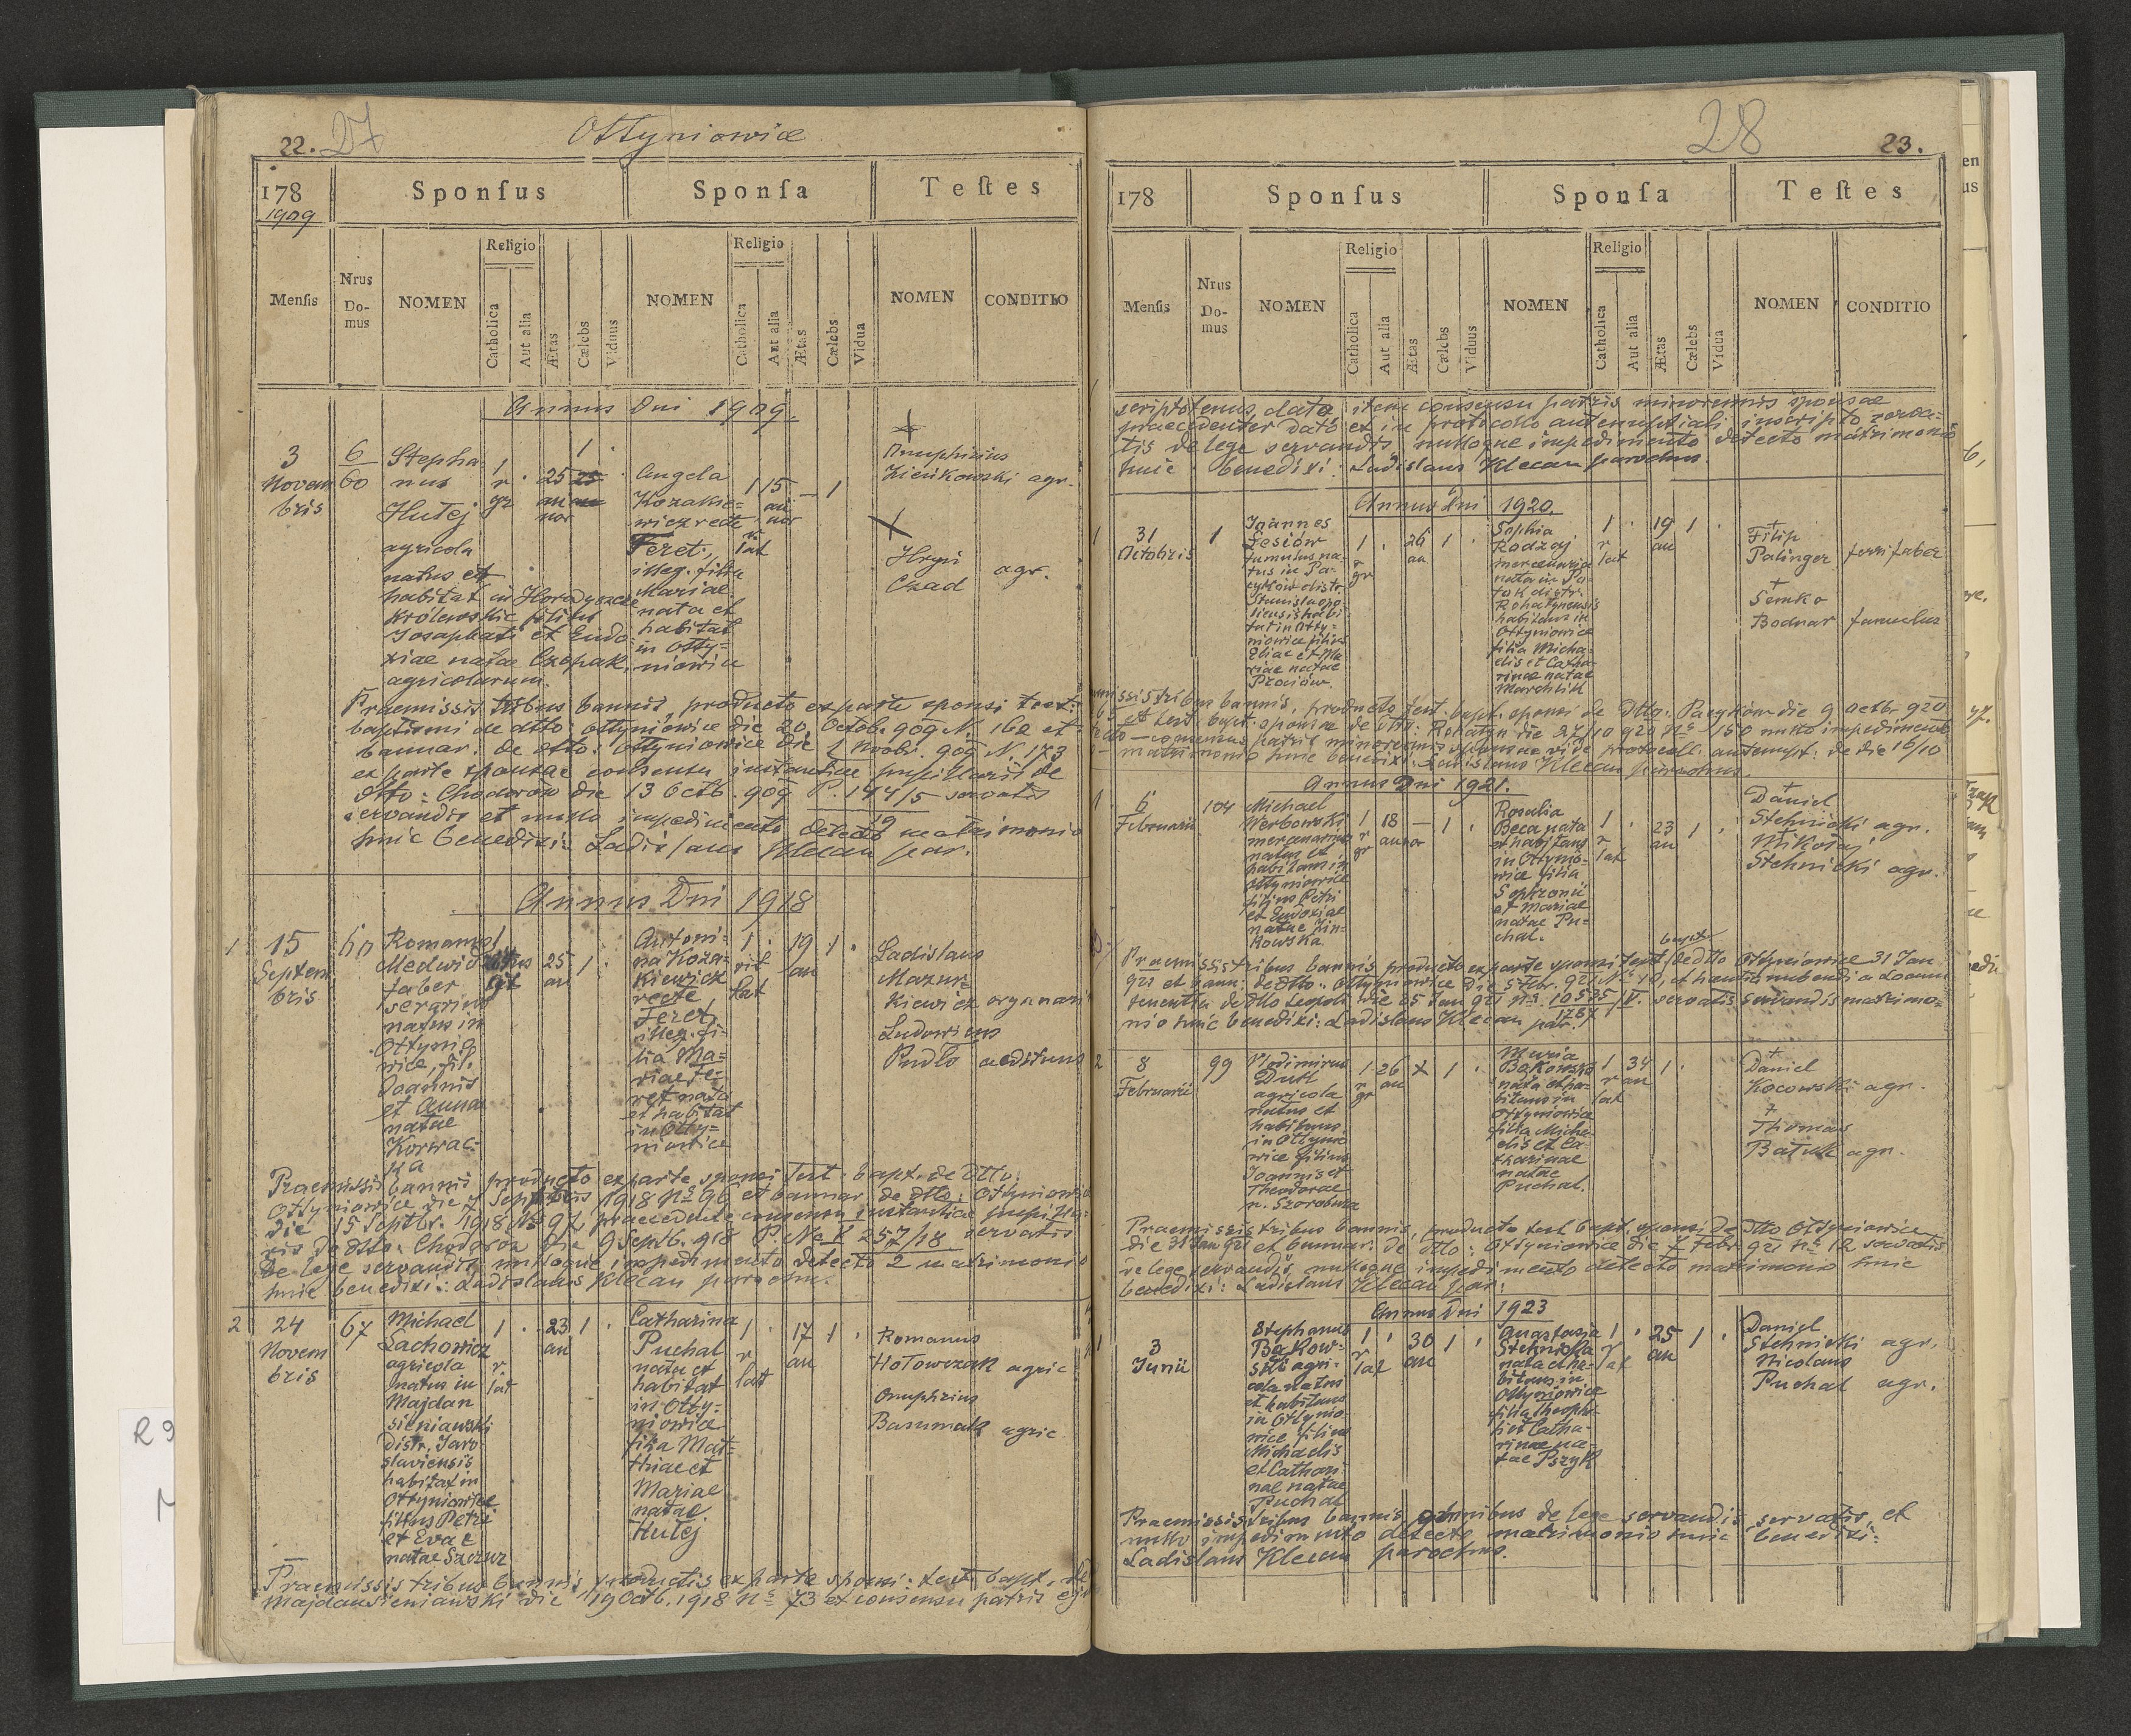 22. 27
Ottyniowice
178
1909
Sponſus
Sponſa
Teſtes
Menſis
Nrus Do-mus
NOMEN
Religio
Catholica
Aut alia
Ætas
Cælebs
Viduus
NOMEN
Religio
Catholica
Aut alia
Ætas
Cælebs
Vidua
NOMEN
CONDITIO
Annus Dni 1909.
3
Novem
bris
6
60
Stepha
nus
Hułej
agricola
natus et
habitat in Horodyszcze
Królewskie filius
Josaphati et Eudo
xiae natae Czopak,
agricolarum.
1
r
gr
25
mi
nor
1
Angela
Kozakie=
wicz recte
Feret,
illeg. filia
Mariae
nata et
habitat
in Otty=
niowice
1
lat
15
mi
nor
1
Onuphrius
Zieńkowski agr.
Hryń
Czad
agr.
Praemissis tribus bannis, producto ex parte sponsi test:
baptismi de dtto Ottyniowice die 20. Octob. 909 N. 162 et
bannar. de dtto: Ottyniowice die 1 Novbr. 909 N. 173
ex parte sponsae consensu instantiae pupillaris de
dtto: Chodorow die 13 Octb. 909 P. 144/5 servatis
servandis et nullo impedimento detecto matrimonio
huic benedixi: Ladislaus Klecan par.
Annus Dni 1918
1
15
Septem
bris
60
Romanus
Medwid
faber
serarius
natus in
Ottynio
wice, fil.
Joannis
et Anna
natae
Korwac-
ka
25
an
1
Antoni-
na Koza-
kiewicz
recte
Feret
illeg. fi-
lia Ma=
riae Fe-
ret nata
et habitat
in Otty=
niowice
1
rit
lat
19
an
1
Ladislaus
Mazur=
kiewicz organari
Ludovicus
Pudło aedituus
Praemissis bannis producto ex parte sponsi test: bapt. de dtto:
Ottyniowice die 7 Septbris 1918 No 96 et bannar. de dtto: Ottyniowice
die 15 Septbr. 1918 No 97 praecedente consensu instantiae pupilla-
ris de dtto: Chodorow die 9 Septb. 918 P. No V 257/18 servatis
de lege servandis nulloque impedimento detecto matrimonio
huic benedixi: Ladislaus Klecan parochus.
2
24
Novem
bris
67
Michael
Lachowicz
agricola
natus in
Majdan
sieniawski
distr. Jaro
slaviensis
habitat in
Ottyniowice
filius Petri
et Evae
natae Szczur
1
r
lat
23
an
1
Catharina
Puchal
nata et
habitat
in Otty=
niowice
filia Mat=
thiae et
Mariae
natae
Hułej
1
r
lat
17
an
1
Romanus
Hołowczak agric
Onuphrius
agric
Praemissis tribus bannis, productis ex parte sponsi: test. bapt. de
Majdansieniawski die 19 Octb. 1918 No 73 et consensu patris
28
23.
178
Sponſus
Sponſa
Teſtes
Menſis
Nrus Do-mus
NOMEN
Religio
Catholica
Aut alia
Ætas
Cælebs
Viduus
NOMEN
Religio
Catholica
Aut alia
Ætas
Cælebs
Vidua
NOMEN
CONDITIO
scriptotenus dato item consensu patris minorennis sponsae
praecedenter dato et in protocollo antenuptiali inscripto, serva=
tis de lege servandis nulloque impedimento detecto matrimonio
huic benedixi: Ladislaus Klecan parochus.
Annus Dni 1920.
1
31
Octobris
1
Joannes
Lesiów
famulus na-
tus in Pa-
cyków distr.
Stanislaopo-
liensis habi
tat in Otty=
niowice filius
Eliae et Ma
riae natae
Prociów.
1
r
gr
26
an
1
Sophia
Radzaj
mercenaria
nata in Po-
tok distr.
Rohatynensis
habitans in
Ottyniowice
filia Micha-
elis et Catha-
rinae natae
Marchlik
1
r
lat
19
an
1
Filip
Palinger ferrifaber
Semko
Bodnar famulus
Praemissis tribus bannis, producto test. bapt. sponsi de dtto. Pacyków die 9 octbr. 920
et test. bapt. sponsae de dtto: Rohatyn die 27/10 920 No 150 nullo impedimento
detecto - consensus patris minorennis sponsae vide protocoll. antenupt. de die 16/10
matrimonio huic benedixi: Ladislaus Klecan parochus.
Annus Dni 1921.
1
6
Februarii
104
Michael
Werbowski
mercenarius
natus et
habitans in
Ottyniowice
filius Petri
et Eudoxiae
natae Zin-
kowska
1
r
gr
18
an
1
Rosalia
Beca nata
et habitans
in Ottynio-
wice filia
Sophronii
et Mariae
natae Pu-
chal.
1
r
lat
23
an
1
Daniel
Stehnicki agr.
Mikołaj
Stehnicki agr.
Praemissis tribus bannis producto ex parte sponsi test. bapt. de dtto Ottyniowice 31 Jan
921 et bann: de dtto: Ottyniowice die 5 Febr. 921 No 10, et
de dtto Leopoli die 25 Jan 921 No 10535/V. servatis servandis matrimo=
nio huic benedixi: Ladislaus Klecan par.
2
8
Februarii
99
Wlodimirus
Dutk
agricola
natus et
habitans
in Ottynio
wice filius
Joannis et
Theodorae
n. Szorobura
1
r
gr
26
an
1
Maria
Bakowska
nata et ha-
bitans in
Ottyniowice
filia Micha-
elis et Ca-
tharinae
natae
Puchal.
1
r
lat
34
an
1
Daniel
Kocowski agr.
Thomas
Batuk agr.
Praemissis tribus bannis, producto test. bapt. sponsi de dtto Ottyniowice
die 31 Jan 921 et bannar. de dtto: Ottyniowice die 7 Febr. 921 No 12 servatis
de lege servandis nulloque impedimento detecto matrimonio huic
benedixi: Ladislaus Klecan par:
Annus Dni 1923
1
3
Junii
Stephanus
Bakow-
ski agri-
cola natus
et habitans
in Ottynio
wice filius
Michaelis
et Cathari
nae natae
Puchal
1
r
lat
30
an
1
Anastasia
Stehnicka
nata et ha-
bitans in
Ottyniowice
filia Theophi-
li et Catha-
rinae na-
tae Pszyk
1
r
lat
25
an
1
Daniel
Stehnicki agr.
Nicolaus
Puchal agr.
Praemissis tribus bannis, omnibus de lege servandis servatis, et
nullo impedimento detecto matrimonio huic benedixi:
Ladislaus Klecan parochus.